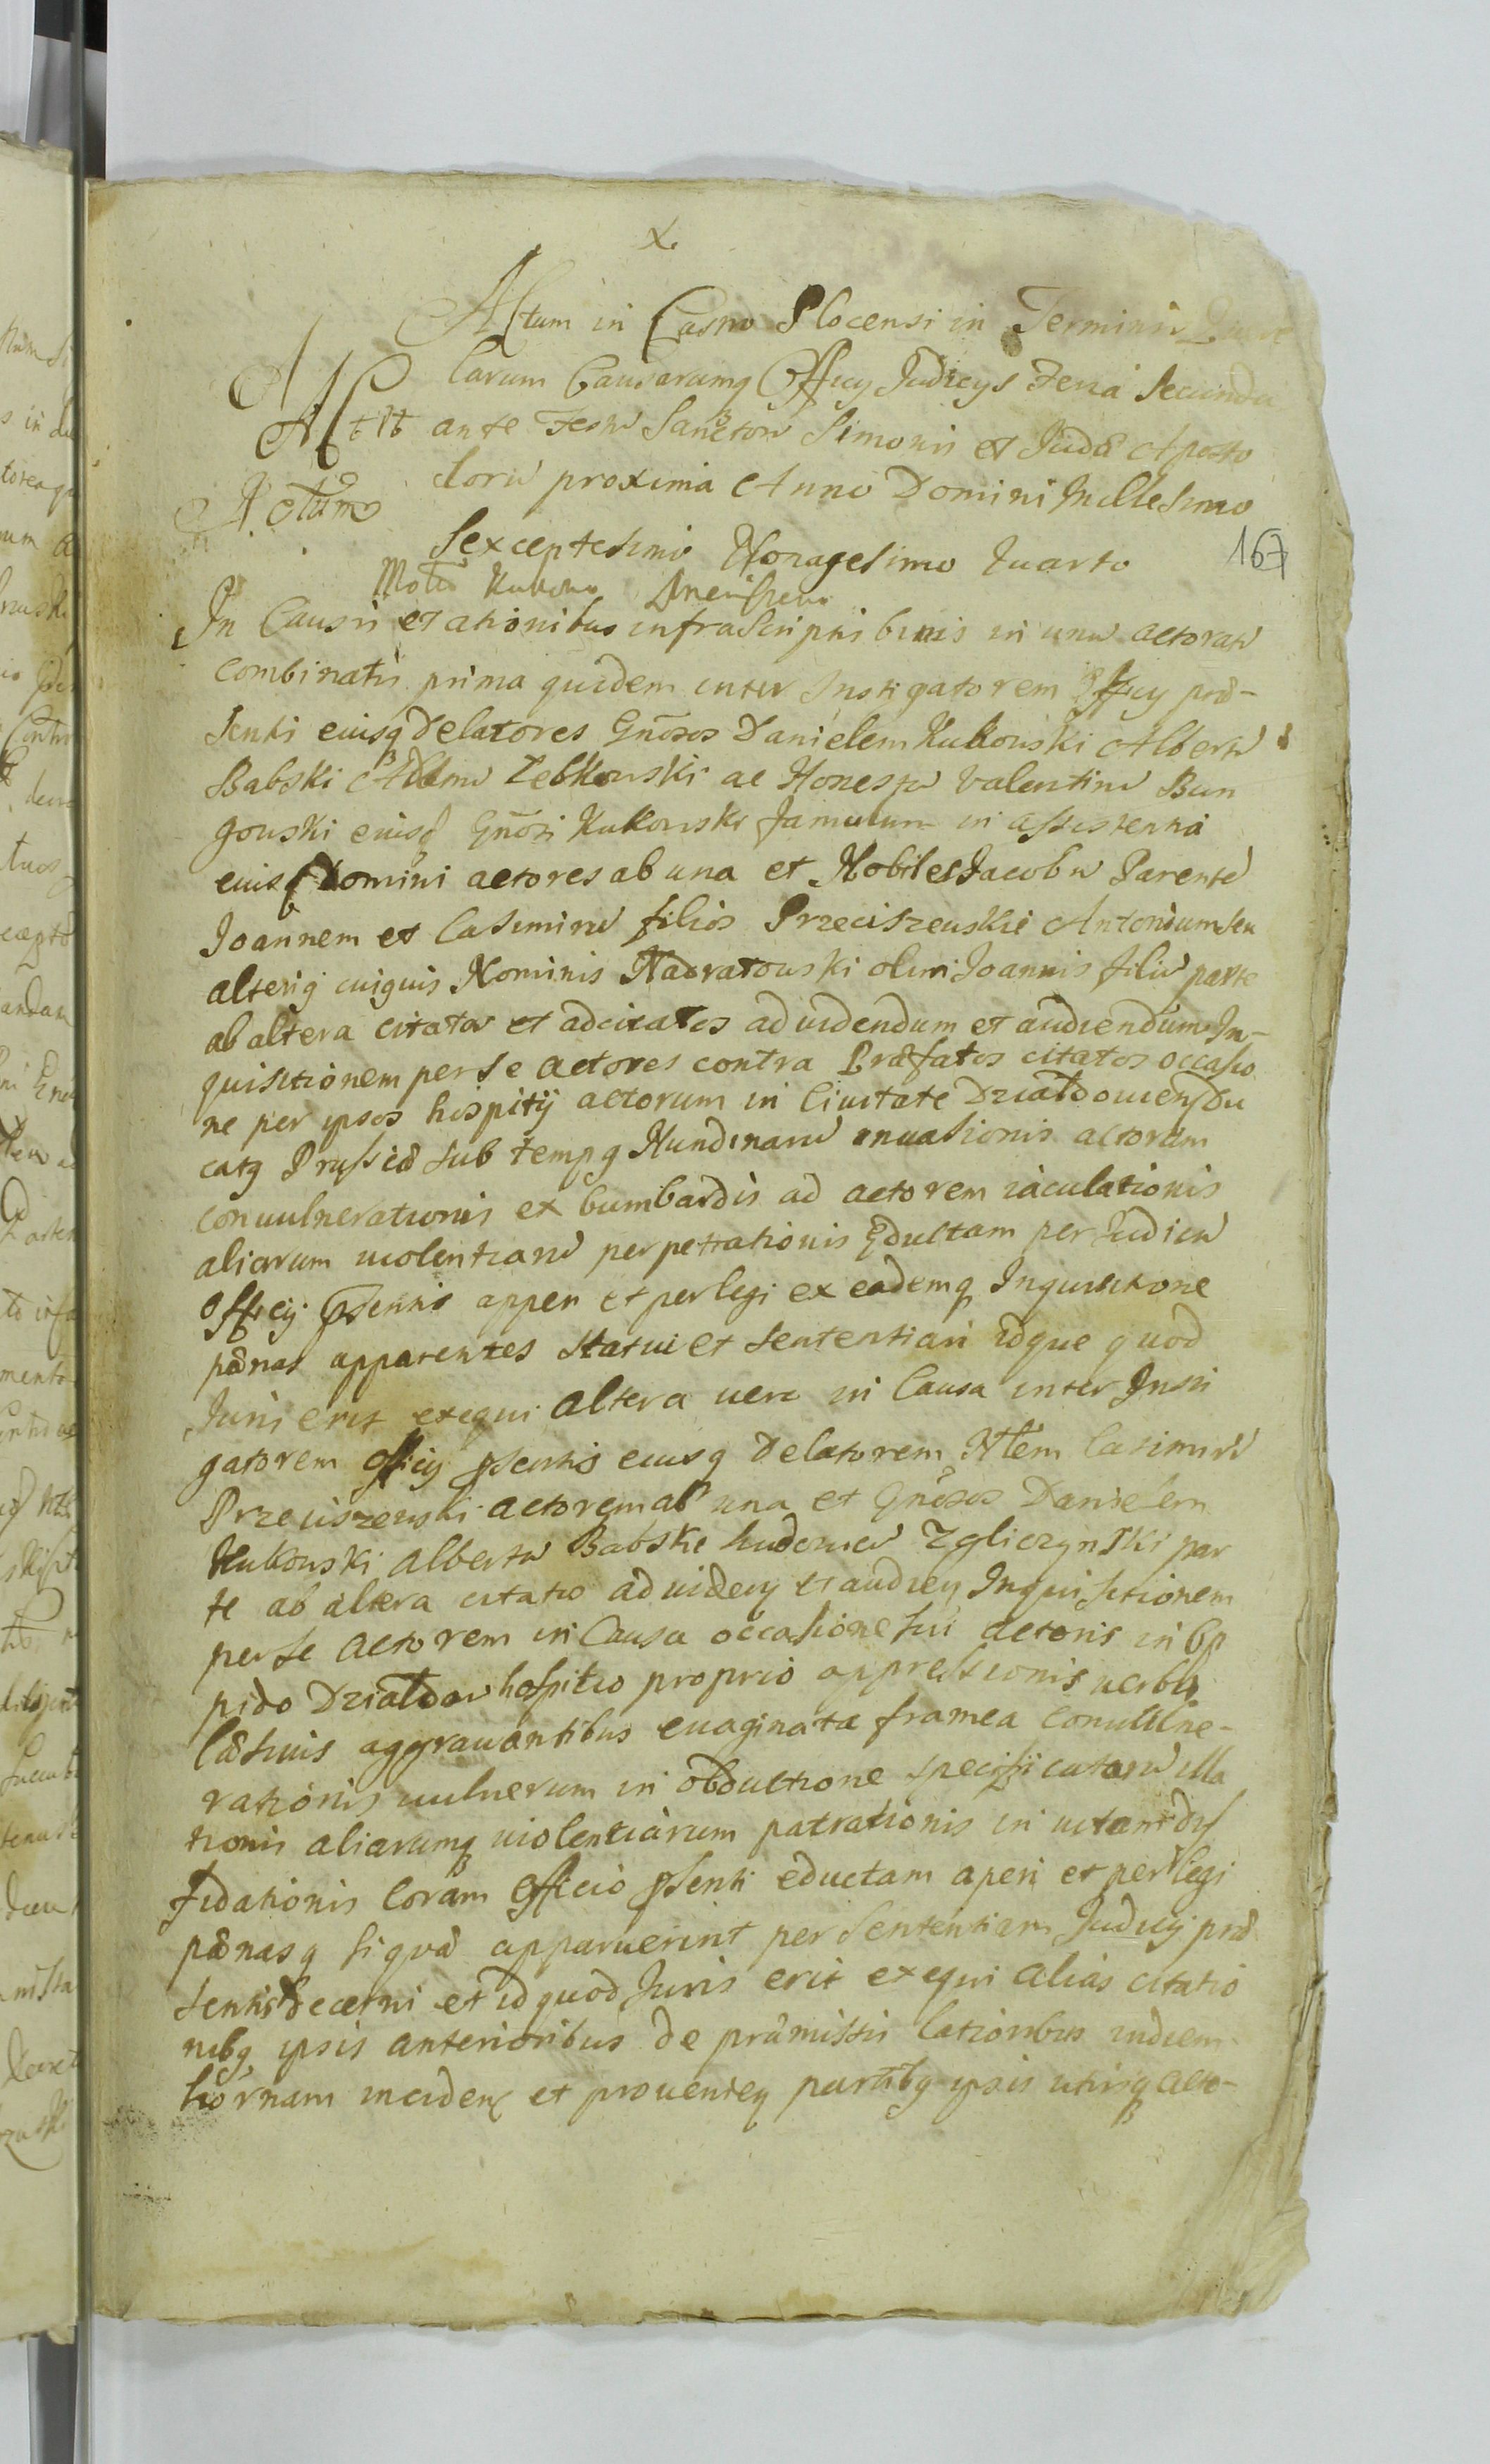 X
Actum in Castro Plocensi in Terminis Quere
larum Causarumq Officy Judicys Feria Secunda
ante Festu Sanctoru Simonis et Juda Aposto
loru proxima Anno Domini Millesimo
Actum
Sexceptesimo Nonagesimo Quarto
167
In Causis et ationibus infrascriptis binis in unu actoratu
combinatis prima quidem inter Instigatorem Officy præ-
senti eiusq Delatores Gnosos Danielem Kukowski Albertu
Babski Adamu Zebkowski ac Honestu Valentinu Bun
gowski eiusd Gnosi Kukowski famulum in assistentia
eiusd Domini actores ab una et Nobiles Jacobu Parente
Joannem et Casimiru filios Przeciszewskie Antonium seu
alteriq cuiquis Nominis Nadratowski olim Joannis filiu parte
ab altera citatos et adcitatos ad uidendum et audiendum In-
quisitionem per se actores contra Præfatos citatos occasio
ne per ipsos hospitij actorum in Ciuitate Działdouiensi Du
catq Prussiæ sub tempq Nundinaru inuasionis actorum
conuulnerationis ex bumbardis ad actorem iaculationis
aliarum uiolentiaru perpetrationis Eductam per Judiciu
Officij psentis apperi et perlegi ex eademq Inquisitione
pænas apparentes statui et sententiari idque quod
Juris erit exequi altera uero in Causa inter Insti
gatorem officij psentis eiusq Delatorem Nlem Casimiru
Przeciszewski actorem ab una et Gnosos Danielem
Kukowski Albertu Babski Ludouicu Zgliczynski par
te ab altera citatos ad uideng et audieng Inquisitionem
per se actorem in Causa occasione sui actoris in Op
pido Działdow hospitio proprio oppressionis uerbis
læsiuis aggrauantibus euaginata framea conuulne-
rationis uulnerum in obductione specificatoru illa
tionis aliarumq uiolentiarum patrationis in uitam dif
fidationis Coram Officio psenti eductam aperi et perlegi
pænasq si quæ apparuerint per sententiam Judicij præ
sentis decerni et id quod Juris erit exequi alias citatio
nibq ipsis anterioribus de præmissis lationibus in diem
hornam inciden et prouenien partibq ipsis utrisq acto-